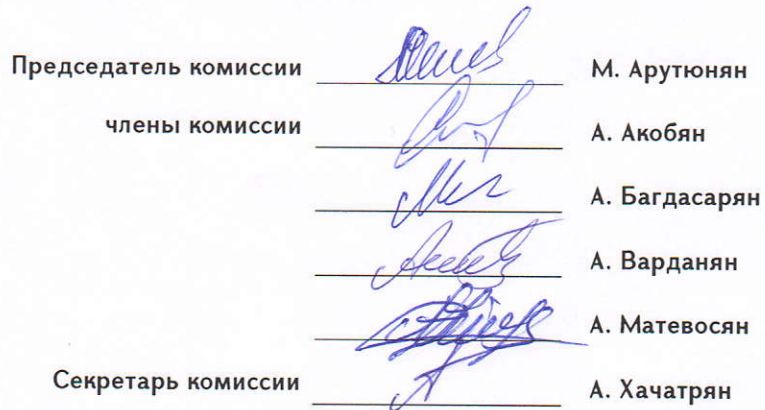 Председатель комиссии М. Арутюнян
члены комиссии А. Акобян
А. Багдасарян
А. Варданян
А. Матевосян
Секретарь комиссии А. Хачатрян